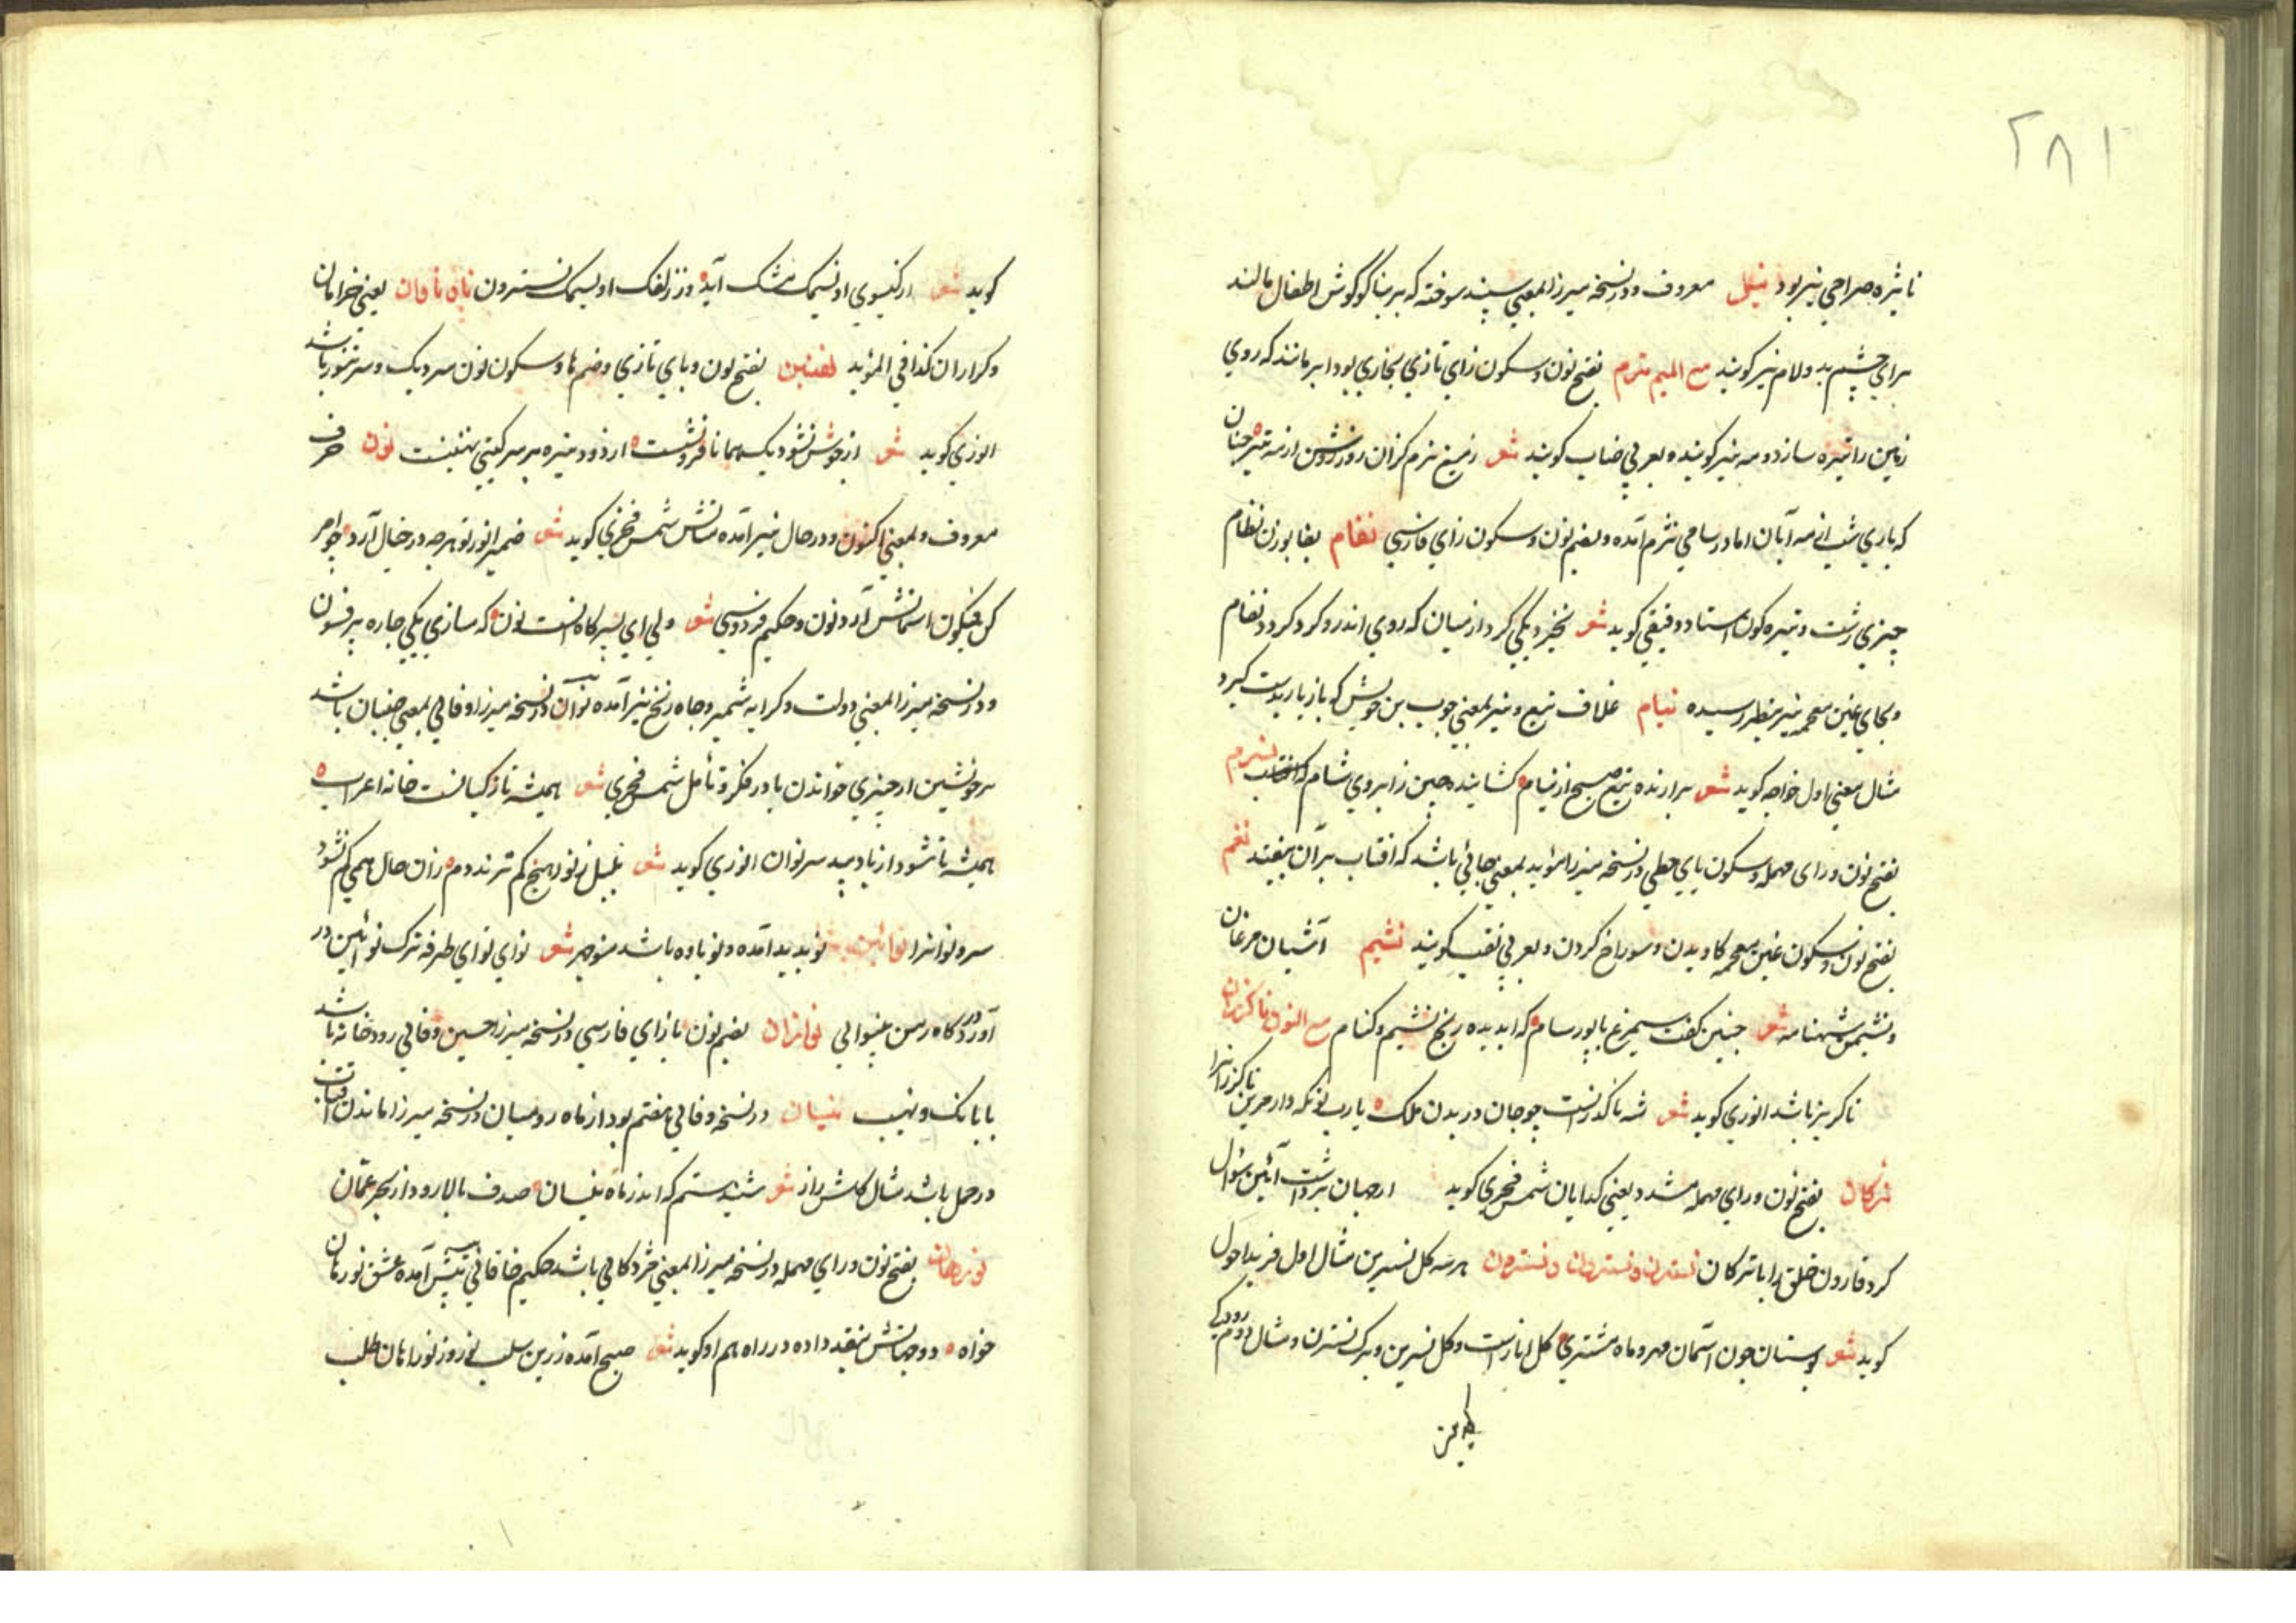 ۲۸۱
نایژه صراحی نیز بود نیل معروف و در نسخه میرزا بمعنی سپند سوخته که بر بناگوش اطفال مالند
برای چشم بد و لام نیز گویند مع المیم نزم بفتح نون و سکون زای تازی بخاری بود ابر مانند که روی
زمین را تیره سازد و مه نیز گویند و بعربی ضباب گویند شعر زمیغ نزم کزان روز روشن از مه تیر چنان
که باری شب از مه آبان اما در سامی نژم آمده و بضم نون و سکون زای فارسی نغام بغا بوزن نظام
چیزی زشت و تیره گون استاد دقیقی گوید شعر بخیزد یکی گرد از میان که روی اندرو گردد نغام
و بجای غین معجمه نیز بنظر رسیده نیام غلاف تیغ و نیز بمعنی چوب بن خویش که بازیار بدست گیرد
مثال معنی اول خواجه گوید شعر برازنده تیغ صبح از نیام گشاینده چین ز ابروی شام نسرم
بفتح نون و رای مهمله و سکون یای حطی در نسخه میرزا و مؤید بمعنی جائی باشد که افتاب بر آن نیفتد نغم
بفتح نون و سکون غین معجمه کاویدن و سوراخ کردن و بعربی نقب گویند نشیم آشیان مرغان
و نشیمن شهنامه شعر چنین گفت سیمرغ با پور سام که ای دیده رنج نشیم و کنام مع النون ناگزران
ناگزیر باشد انوری گوید شعر شه ناگذرانست چو جان در بدن ملک یا رب تو نگه دار مر این ناگزرانرا
نرکان بفتح نون و رای مهمله مشدد یعنی گدایان شمس فخری گوید از جهان برداشت آئین سؤال
کرد قارون خلق را با نرکان نسترن و نستردن و نسترون هر سه گل نسرین مثال اول فرید احول
گوید شعر بوستان چون آسمان مهر و ماه مشتری گل انارست و گل نسرین و برگ نسترن و مثال دوم رودکی
گوید شعر از گیسوی او نسیمک مشک آید وز زلفک او نسیمک نسترون ناوناوان یعنی خرامان
و گرازان کذا فی المؤید نهنبن بفتح نون و بای تازی و ضم ها و سکون نون سر دیگ و سر تنور باشد
انوری گوید شعر از جوش نشود دیگ همانا فرو نشست از دود تیره بر سر گیتی نهنبنست نون حرف
معروف و بمعنی اکنون و در حال نیز آمده مثالش شمس فخری گوید شعر ضمیر انور تو هرچه در خیال آرد جواهر
کن فیکون آسمانش آرد نون و حکیم فردوسی شعر ولی ای پسر گاه انست نون که سازی یکی چاره پر فسون
و در نسخه میرزا بمعنی دولت و کرانه شمشیر و چاه زنخ نیز آمده نوان در نسخه میرزا و وفائی بمعنی جنبان باشد
بر خویشتن از چیزی خواندن یا در فکر و تأمل شمس فخری شعر همیشه تا ز کسانست خانه اعراب
همیشه تا شود از باد بید سر نوان انوری گوید شعر بلبل ز نوا هیچ کم نزند دم زان حال همی کم نشود
سرو نوانرا نوائین نو پدید آمده و نوباوه باشد منوچهر شعر نوای نوای طرفه ترک نوآئین در
آوردگاه رسن بینوائی نواژان بضم نون با زای فارسی در نسخه میرزا حسین وفائی رودخانه باشد
با بانک و نهیب نیسان در نسخه وفائی هفتم بود از ماه رومیان در نسخه میرزا ماندن آفتاب
در حمل باشد مثال گلشن راز شعر شنیدستم که اندر ماه نیسان صدف بالا رود از بحر عمان
نورهان بفتح نون و رای مهمله در نسخه میرزا بمعنی مژدگانی باشد حکیم خاقانی پیش آمده عشق نورهان
خواه دو جهانش بنقد داده در راه هم او گوید شعر صبح آمده زرین سلب نوروز نوراهان طلب